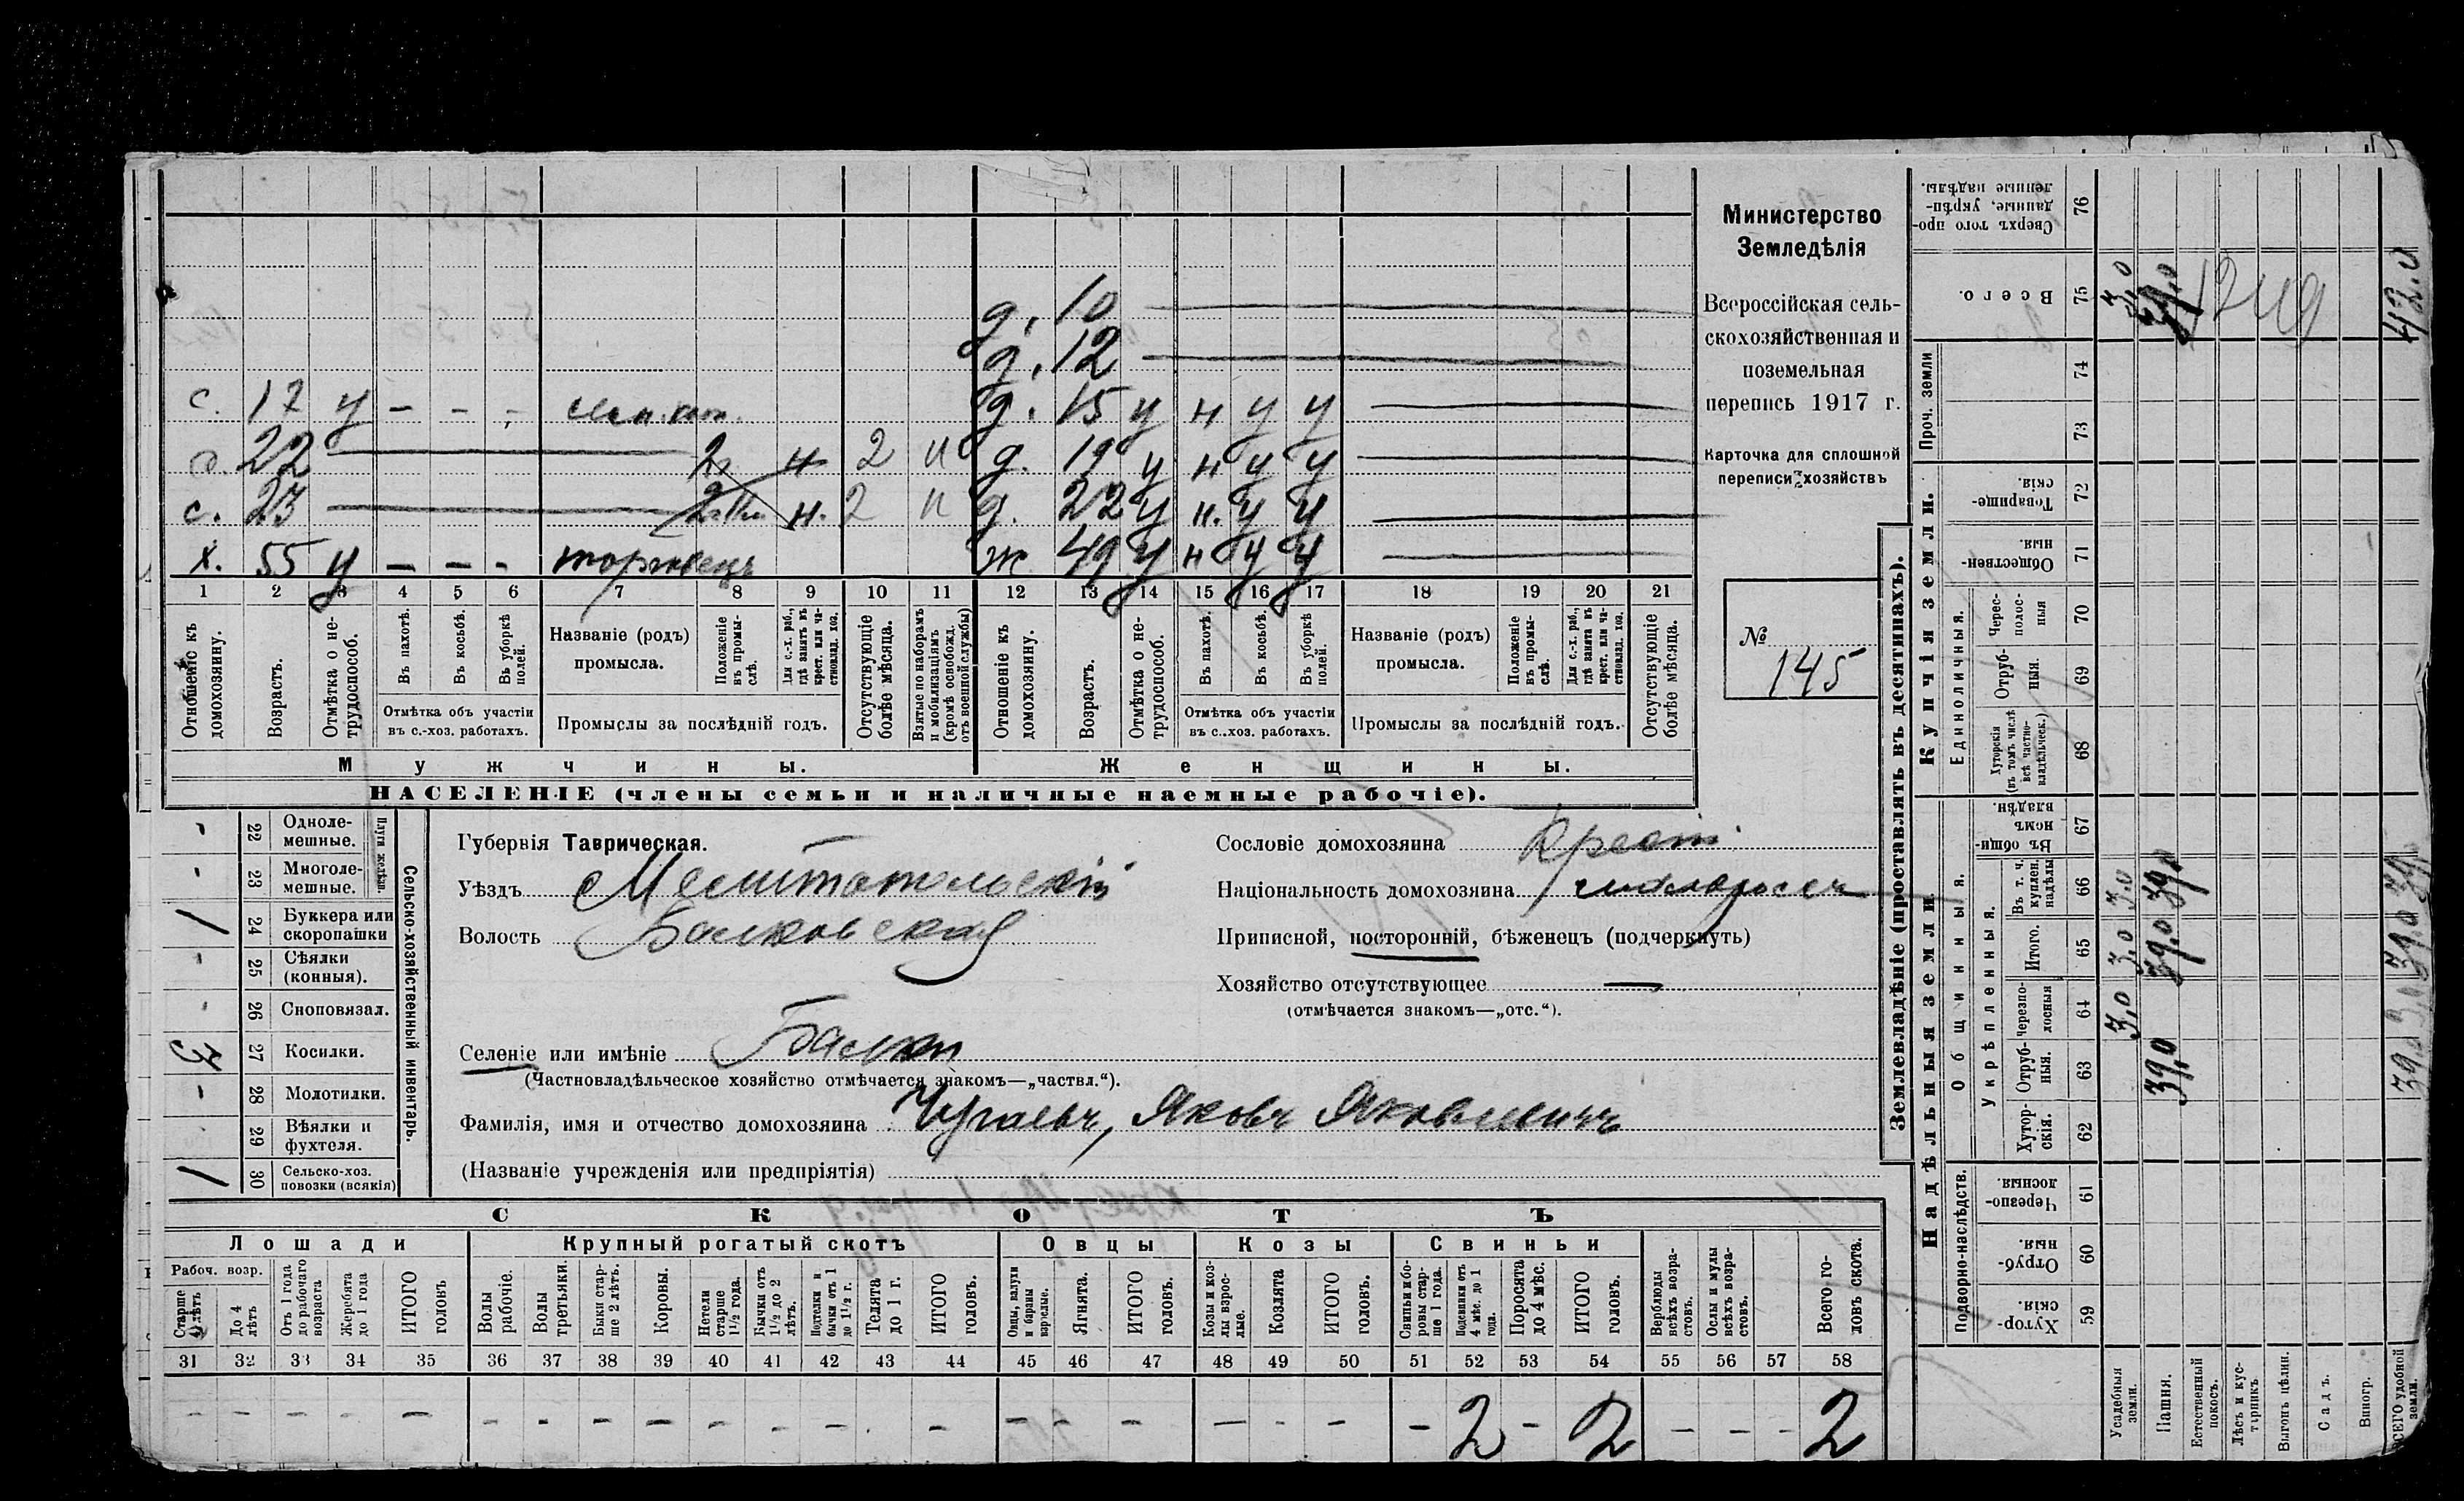 Министерство
Земледѣлія
Всероссійская сель-
скохозяйственная и
поземельная
перепись 1917 г.
Карточка для сплошной
переписи хозяйствъ
№
145
д. 10
д. 12
с. 17 у - - - д. 15 у н у у
с. 22 2 н 2 н д. 19 у н у у
с. 23 н. 2 н д. 22 у н. у у
х. 55 у - - - торговецъ ж 49 у н у у
1 2 3 4 5 6 7 8 9 10 11 12 13 14 15 16 17 18 19 20 21
Отношеніе къ домохозяину.
Возрастъ.
Отмѣтка о не-трудоспособ.
Въ пахотѣ.
Въ косьбѣ.
Въ уборкѣ полей.
Отмѣтка объ участіи въ с.-хоз. работахъ.
Названіе (родъ) промысла.
Положеніе въ промы-слѣ.
Для с.-х. раб., гдѣ занятъ въ крест. или ча-стновлад. хоз.
Промыслы за послѣдній годъ.
Отсутствующіе болѣе мѣсяца.
Взятые по наборамъ и мобилизаціямъ (кромѣ освобожд. отъ военной службы)
Отношеніе къ домохозяину.
Возрастъ.
Отмѣтка о не-трудоспособ.
Въ пахотѣ.
Въ косьбѣ.
Въ уборкѣ полей.
Отмѣтка объ участіи въ с.-хоз. работахъ.
Названіе (родъ) промысла.
Положеніе въ промы-слѣ.
Для с.-х. раб., гдѣ занята въ крест. или ча-стновлад. хоз.
Промыслы за послѣдній годъ.
Отсутствующіе болѣе мѣсяца.
Мужчины.
Женщины.
НАСЕЛЕНІЕ (члены семьи и наличные наемные рабочіе).
Сельско-хозяйственный инвентарь.
- 22 Одноле-мешные.
- 23 Многоле-мешные.
1 24 Буккера или скоропашки
- 25 Сѣялки (конныя).
- 26 Сноповязал.
3 27 Косилки.
- 28 Молотилки.
29 Вѣялки и фухтеля.
1 30 Сельско-хоз. повозки (всякія)
Губернія Таврическая.
Уѣздъ Мелитопольскій
Волость Балковская
Селеніе или имѣніе Балки
(Частновладѣльческое хозяйство отмѣчается знакомъ—„частвл.“).
Фамилія, имя и отчество домохозяина Чугаевъ, Яковъ Яковлевичъ
(Названіе учрежденія или предпріятія)
Сословіе домохозяина Крест.
Національность домохозяина малороссъ
Приписной, посторонній, бѣженецъ (подчеркнуть)
Хозяйство отсутствующее —
(отмѣчается знакомъ—„отс.“).
СКОТЪ
Лошади
Крупный рогатый скотъ
Овцы
Козы
Свиньи
Рабоч. возр.
Старше 4 лѣтъ
До 4 лѣтъ
Отъ 1 года до рабочаго возраста
Жеребята до 1 года
ИТОГО головъ
Волы рабочіе.
Волы третьяки.
Быки стар-ше 2 лѣтъ.
Коровы.
Нетели старше 1½ года.
Бычки отъ 1½ до 2 лѣтъ.
Подтелки и бычки отъ 1 до 1½ г.
Телята до 1 г.
ИТОГО головъ.
Овцы, валухи и бараны взрослые.
Ягнята.
ИТОГО головъ.
Козы и коз-лы взрос-лые.
Козлята
ИТОГО головъ.
Свиньи и бо-ровы стар-ше 1 года.
Подсвинки отъ 4 мѣс. до 1 года.
Поросята до 4 мѣс.
ИТОГО головъ.
Верблюды всѣхъ возра-стовъ.
Ослы и мулы всѣхъ возра-стовъ.
Всего го-ловъ скота.
31 32 33 34 35 36 37 38 39 40 41 42 43 44 45 46 47 48 49 50 51 52 53 54 55 56 57 58
- - - - - - - - - - - - - - - - - - - - - 2 - 2 - - - 2
Землевладѣніе (проставлять въ десятинахъ).
Надѣльныя земли.
Купчія земли.
Проч. земли
Подворно-наслѣдств.
Общинныя.
Укрѣпленныя.
Единоличныя.
Хутор-скія. 59
Отруб-ныя. 60
Черезпо-лосныя 61
Хутор-скія. 62
Отруб-ныя. 63
Черезпо-лосныя 64
Итого. 65
Въ т. ч. куплен. надѣлы 66
Въ общи-номъ владѣн. 67
Хуторскія (въ томъ числѣ всѣ частно-владѣльческ.) 68
Отруб-ныя. 69
Черес-полос-ныя 70
Обществен-ныя. 71
Товарище-скія. 72
73
74
Всего. 75
Сверхъ того про-данные, укрѣп-ленные надѣлы. 76
Усадебныя земли. 3,0 3,0 3,0 3,0
Пашня. 39,0 39,0 39,0 39,0
Естественный покосъ.
Лѣсъ и кус-тарникъ
Выгонъ цѣлин.
Садъ.
Виногр.
ВСЕГО удобной земли. 39,0 3,0 39,0 39,0 42.0